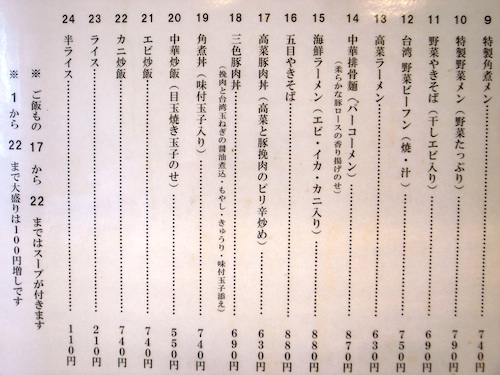 9 特製角煮メン……740円
10 特製野菜メン（野菜たっぷり）……790円
11 野菜やきそば（干しエビ入り）……690円
12 台湾 野菜ビーフン（焼・汁）……750円
13 高菜ラーメン……630円
14 中華排骨麵（パーコーメン）……870円
（柔らかな豚ロースの香り揚げのせ）
15 海鮮ラーメン（エビ・イカ・カニ入り）……880円
16 五目やきそば……880円
17 高菜豚肉丼（高菜と豚挽肉のピリ辛炒め）……630円
18 三色豚肉丼……690円
（挽肉と台湾玉ねぎの醤油煮込・もやし・きゅうり・味付玉子添え）
19 角煮丼（味付玉子入り）……740円
20 中華炒飯（目玉焼き玉子のせ）……550円
21 エビ炒飯……740円
22 カニ炒飯……740円
23 ライス……210円
24 半ライス……110円
※ ご飯もの 17 から 22 まではスープが付きます
※ 1 から 22 まで大盛りは100円増しです